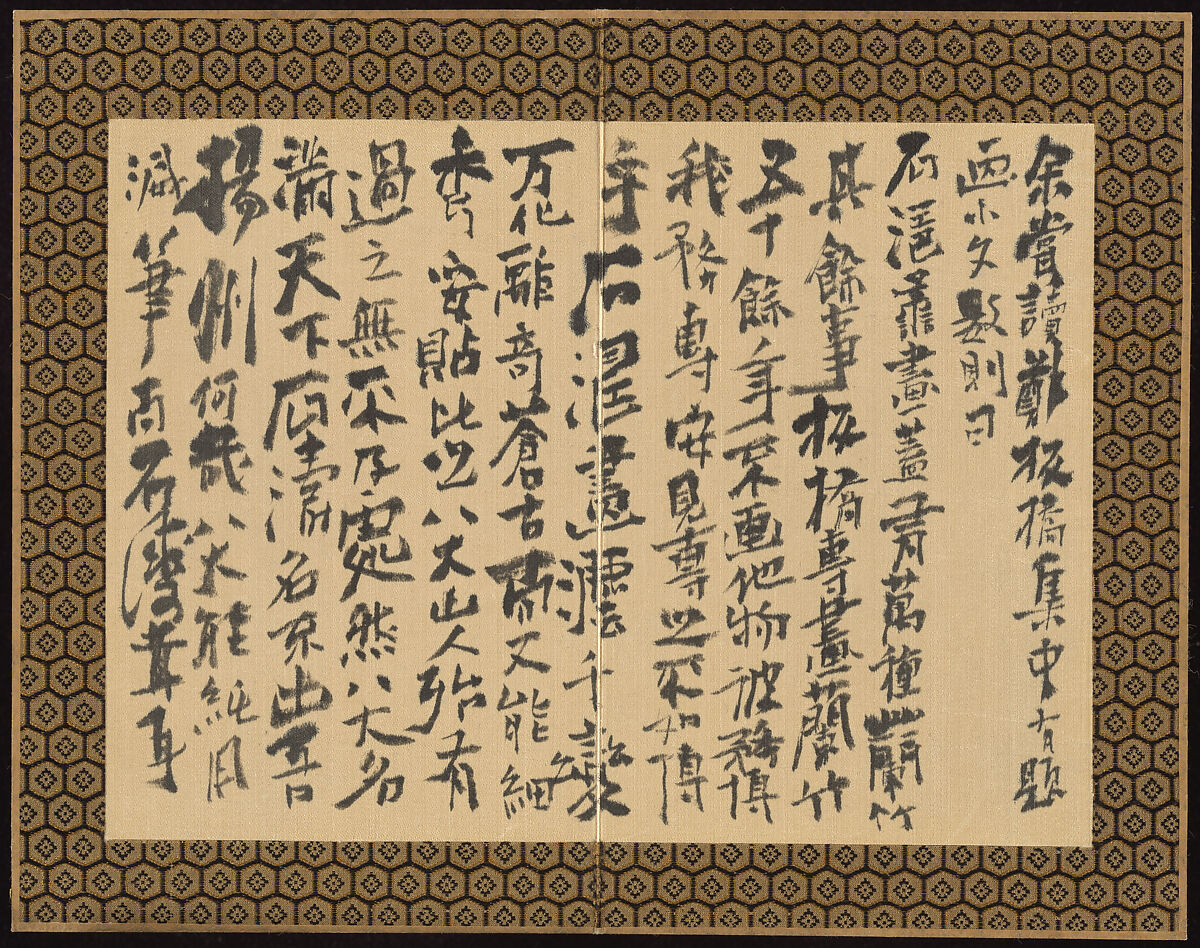 余嘗讀鄭板橋集中有題
画小文數則曰
石濤善畫蓋有萬種蘭竹
其餘事板橋專畫蘭竹
五十餘年不画他物彼務博
我務專安見專之不如博
乎石濤畫法千變
万化離奇蒼古而又能細
秀妥貼比之八大山人殆有
過之無不及處然八大名
滿天下石濤名不出吾
揚州何哉八大能純用
減筆而石濤茸耳